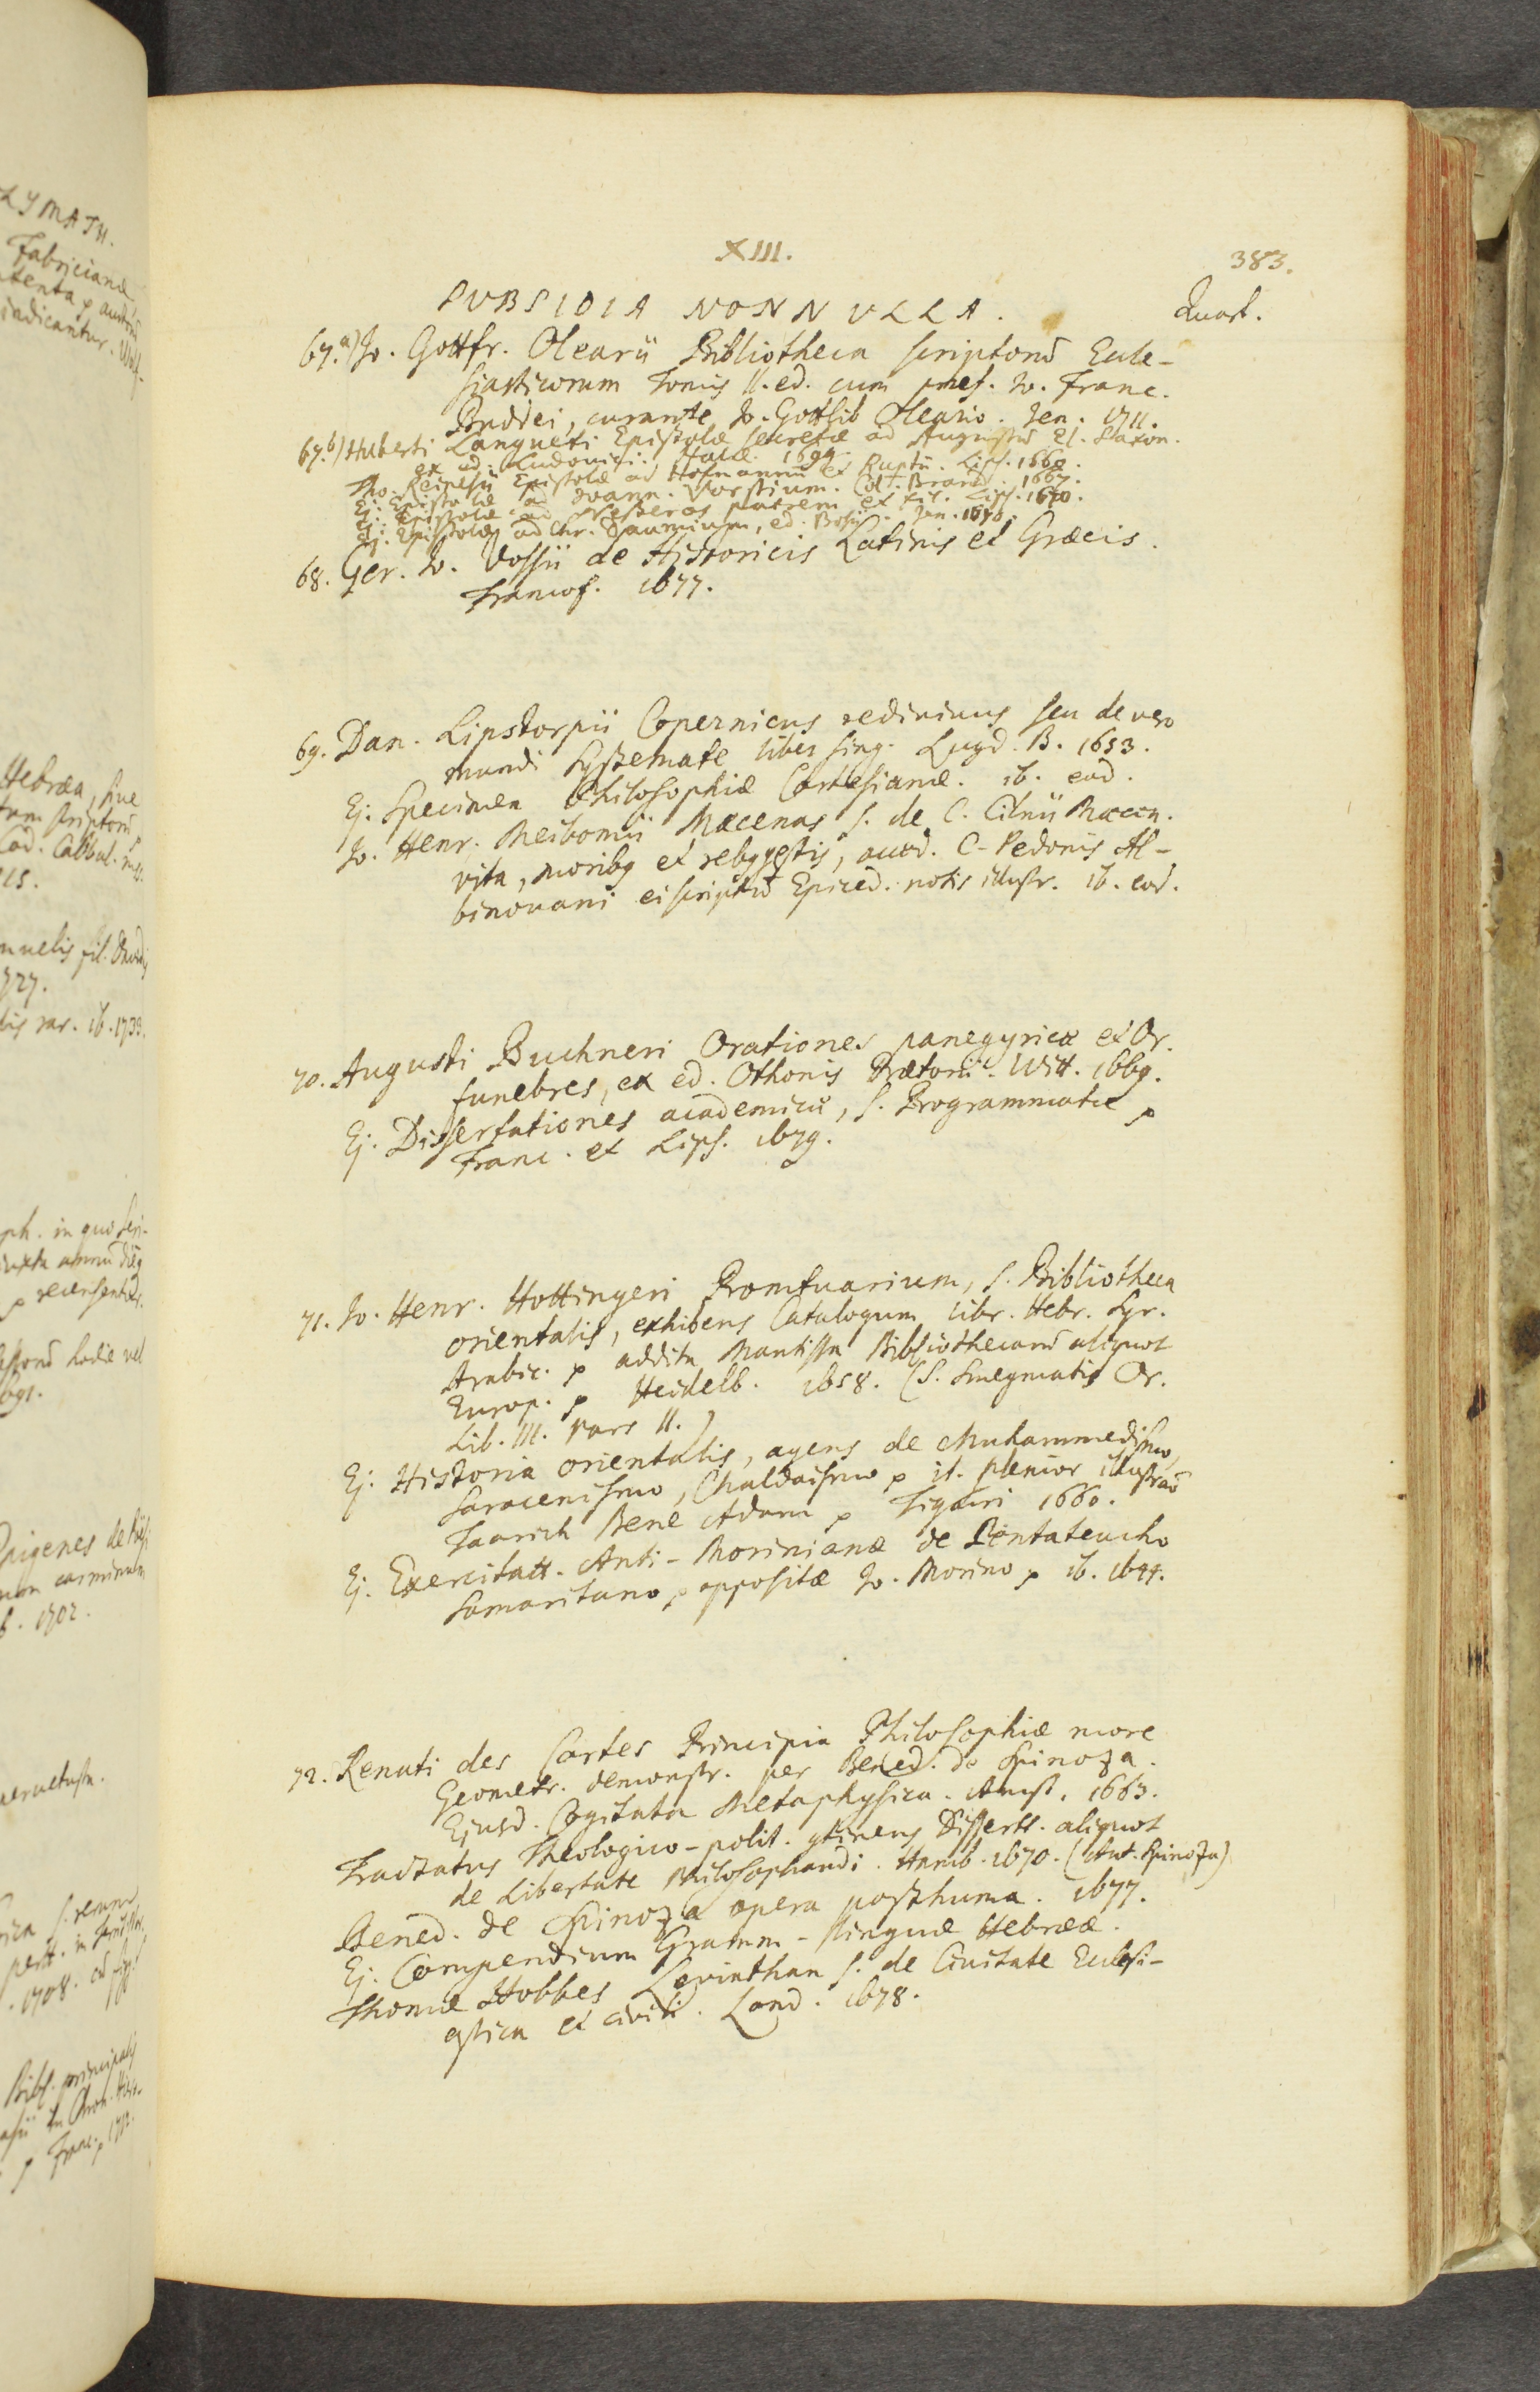 XIII.
383.
SVBSIDIA NONNVLLA.
Quart.
67.a) Jo. Gottfr. Olearii Bibliotheca scriptorũ Eccle-
siasticorum Tomis II. ed. cum præf. Jo. Franc.
Buddei, curante Jo. Gottlib Oleario. Jen. 1711.
67.b) Huberti Langueti Epistolæ secretæ ad Augustũ El. Saxon.
ex ed. Ludovici. Halæ. 1699.
Tho. Reinesii Epistolæ ad Hofmannũ et Ruptũ. Lips. 1660.
Ej. Epistolæ ad Joann. Vorstium. Col. Brand. 1667.
Ej. Epistolæ ad Nesteros patrem et fil. Lips. 1670.
Ej. Epistolæ ad Chr. Daumium, ed. Bosii. Jen. 1670.
68. Ger. Jo. Vossii de Historicis Latinis et Græcis.
Francof. 1677.
69. Dan. Lipstorpii Copernicus redivivus seu de vero
mundi Systemate liber sing. Lugd. B. 1653.
Ej. Specimen Philosophiæ Cartesianæ. ib. eod.
Jo. Henr. Meibomii Mæcenas s. de C. Cilnii Mæcen.
vita, moribq et rebq gestis, acced. C. Pedonis Al-
binovani ei scriptũ Epiced. notis illustr. ib. eod.
70. Augusti Buchneri Orationes panegyricæ et Or.
funebres, ex ed. Othonis Prætorii. Witt. 1669.
Ej. Dissertationes academicæ, s. Programmata p
Franc. et Lips. 1679.
71. Jo. Henr. Hottingeri Promtuarium, s. Bibliotheca
orientalis, exhibens Catalogum libr. Hebr. Syr.
Arabic. p addita Mantissa Bibliothecarũ aliquot
Europ. p Heidelb. 1658. (s. Smegmatis Or.
Lib. III. pars II.)
Ej. Historia orientalis, agens de Muhammedismo,
Saracenismo, Chaldaismo p it. plenior illustraõ
Taarich Bene Adam p Tiguri 1660.
Ej. Exercitatt. Anti-Morinianæ de Pentateucho
Samaritano, p oppositæ Jo. Morino p ib. 1644.
72. Renati des Cartes Principia Philosophiæ more
Geometr. demonstr. per Bened. de Spinoza.
Ejusd. Cogitata Metaphysica. Amst. 1663.
Tractatus Theologico-polit. gtinens Dissertt. aliquot
de Libertate Philosophandi. Hamb. 1670. (Aut. Spinoza)
Bened. de Spinoza opera posthuma. 1677.
Ej. Compendium Gramm. Linguæ Hebrææ.
Thomæ Hobbes Leviathan s. de Civitate Ecclesi-
astica et civili. Lond. 1678.